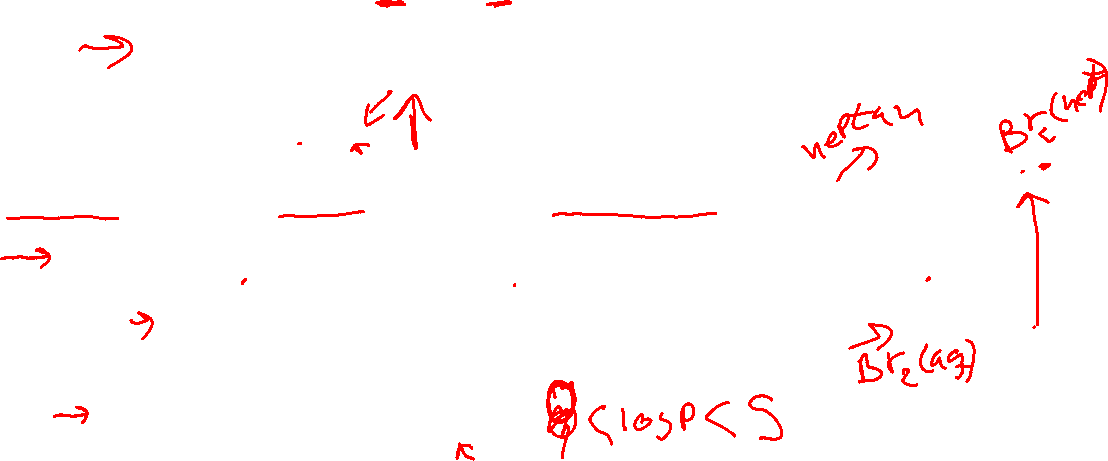 heptan
Br2(hept)
Br2(aq)
<logP<5